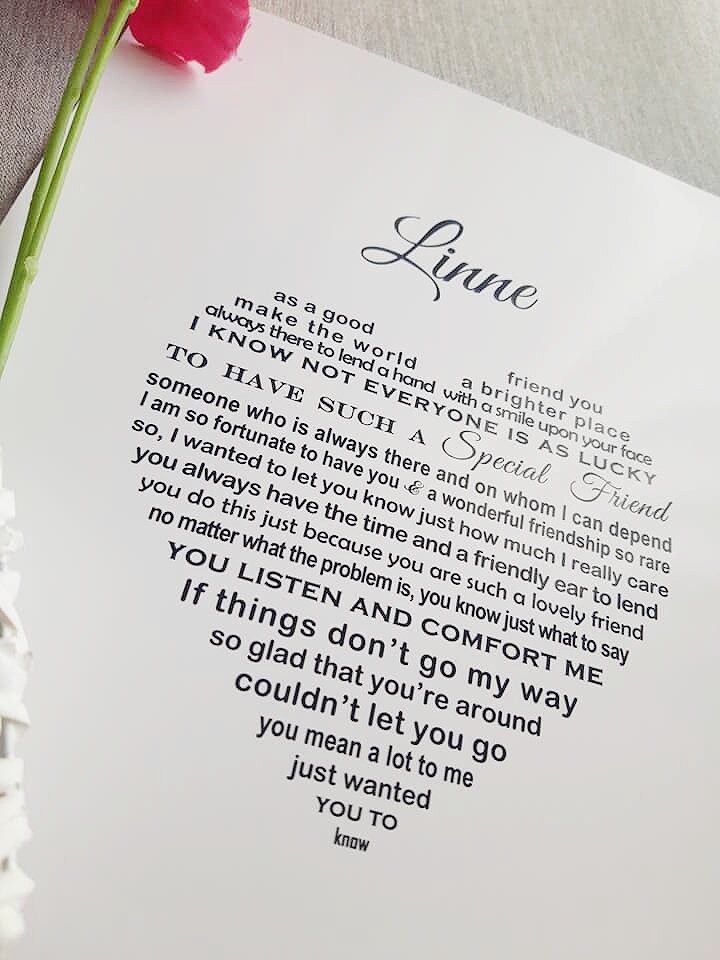 Linne
as a good friend you
make the world a brighter place
always there to lend a hand with a smile upon your face
I KNOW NOT EVERYONE IS AS LUCKY
TO HAVE SUCH A Special Friend
someone who is always there and on whom I can depend
I am so fortunate to have you & a wonderful friendship so rare
so, I wanted to let you know just how much I really care
you always have the time and a friendly ear to lend
you do this just because you are such a lovely friend
no matter what the problem is, you know just what to say
YOU LISTEN AND COMFORT ME
If things don't go my way
so glad that you're around
couldn't let you go
you mean a lot to me
just wanted
YOU TO
know